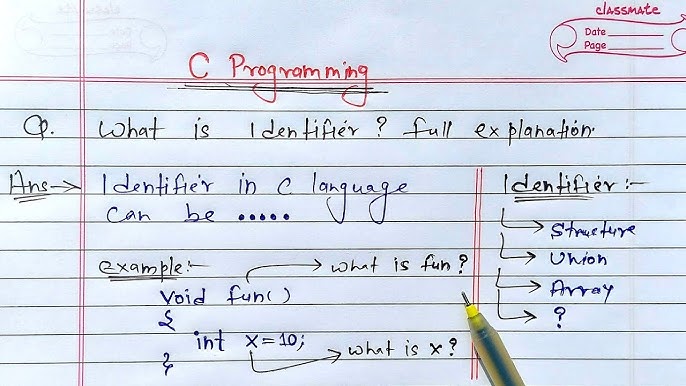 classmate
Date
Page
C Programming
Q. What is Identifier? full explanation.
Ans→ Identifier in C language
can be .....
example:-
void fun()
what is fun?
{
int x=10;
what is x?
}
Identifier:-
Structure
Union
Array
?